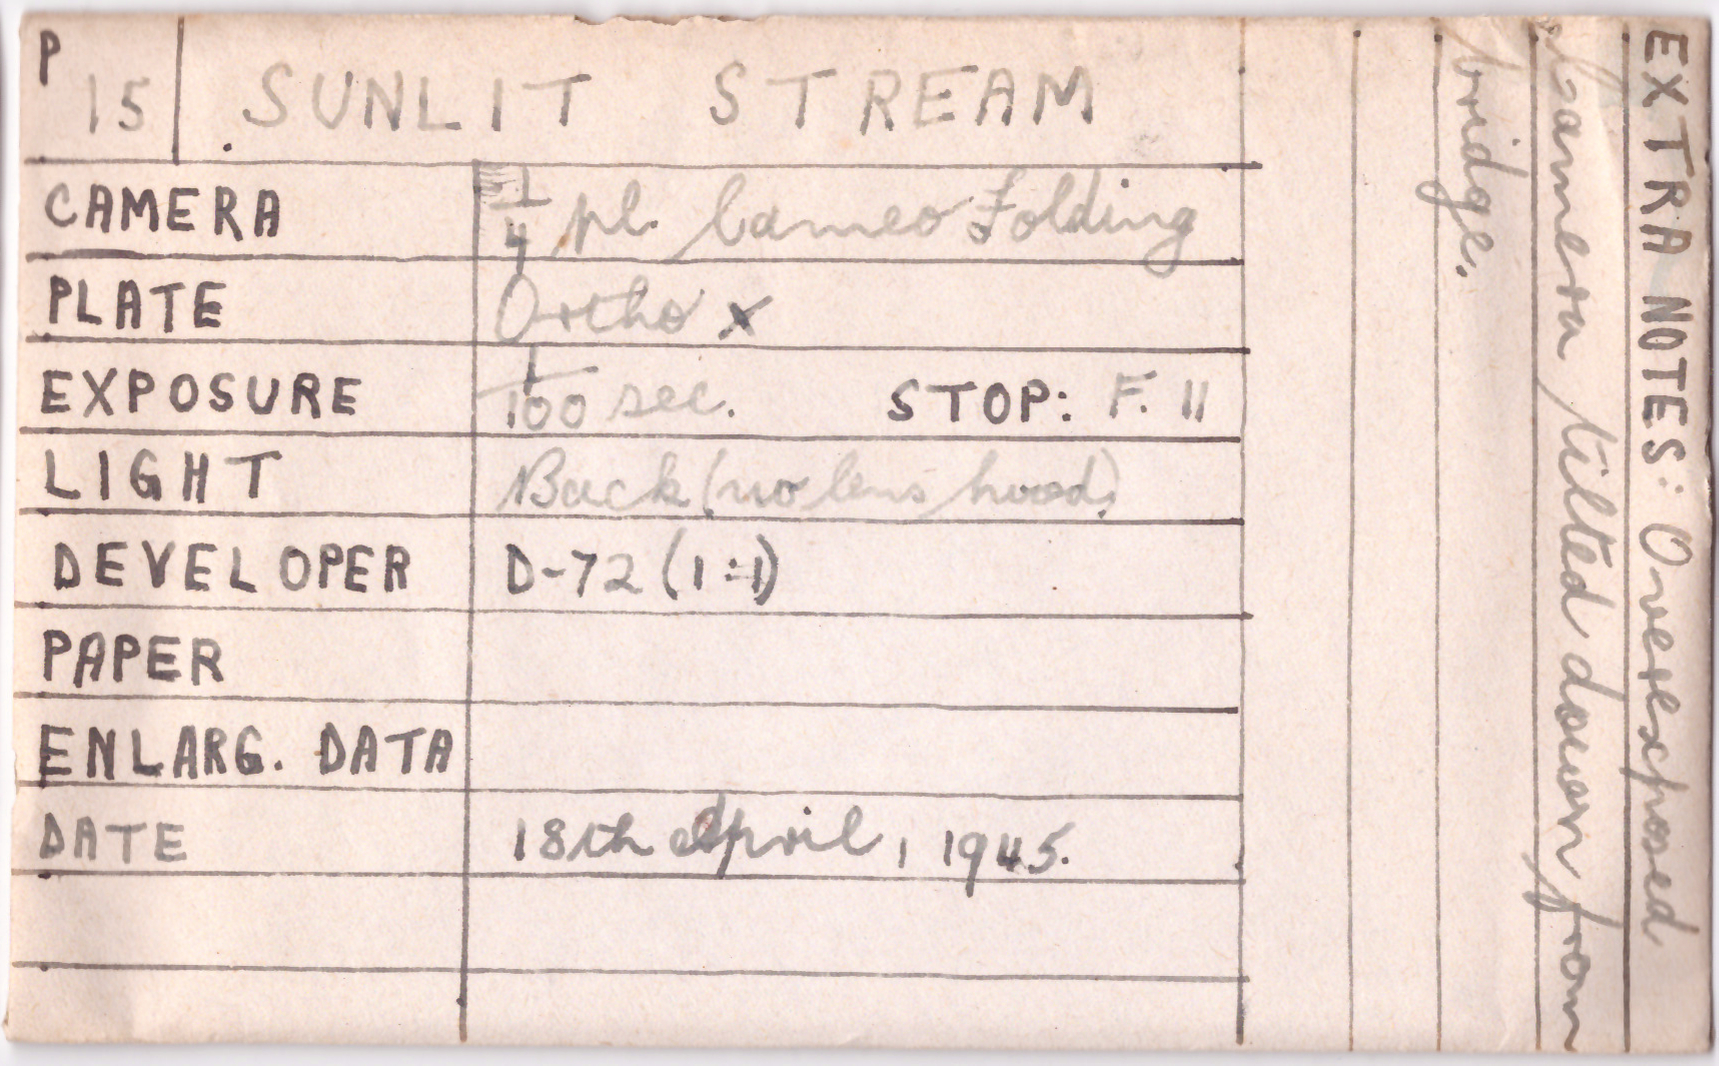 P 15 SUNLIT STREAM
CAMERA 1/4 pl. Cameo Folding
PLATE Ortho X
EXPOSURE 1/100 sec. STOP: F. 11
LIGHT Back (no lens hood)
DEVELOPER D-72 (1:1)
PAPER
ENLARG. DATA
DATE 18th April, 1945.
EXTRA NOTES: Overexposed
Camera tilted down from
bridge.